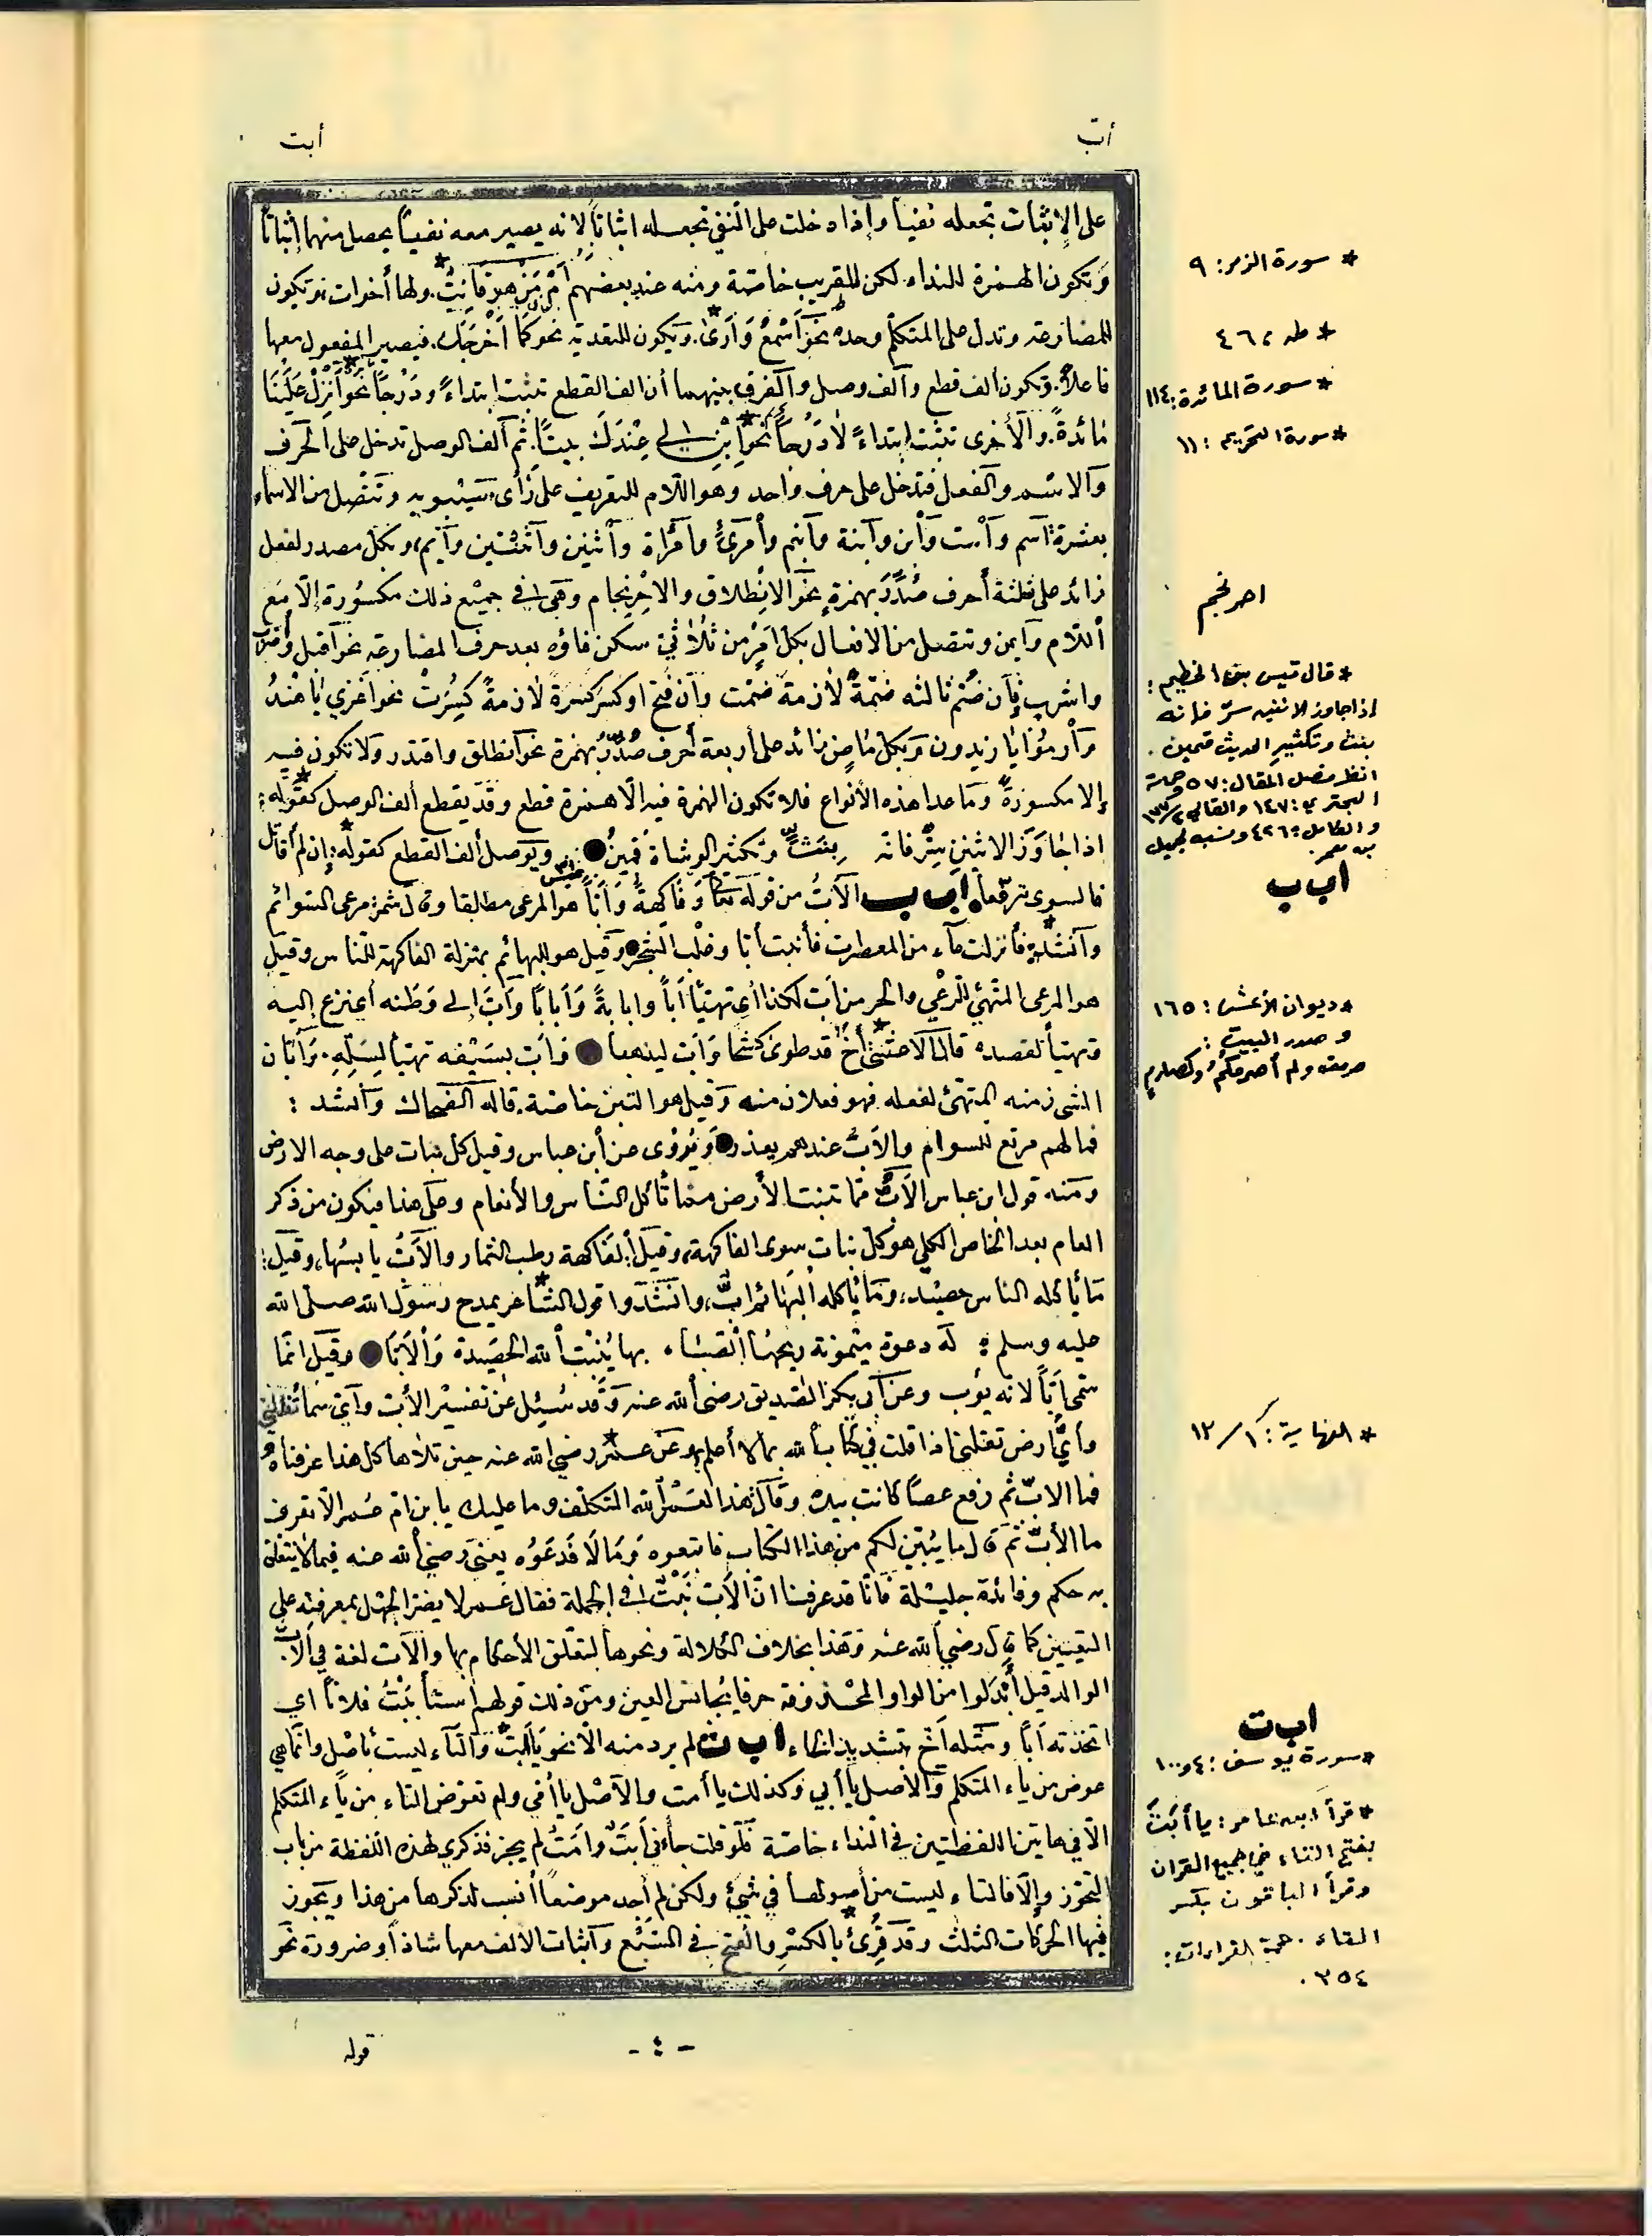 أبّ
أبت
على الإثبات تجعله نفياً وإذا دخلت على النفي تجعله اثباتاً لانه يصير معه نفياً يحصل منهما إثباتاً
وتكون الهمزة للنداء لكن للقريب خاصّة ومنه عند بعضهم أَمَّنْ هو قَانِتٌ * ولها أخوات وتكون
للمضارعة وتدل على المتكلّم وحده نحو أَسْمَعُ وَأَرَىٰ * ويكون للتعدية نحو كَمَا أَخْرَجَكَ فيصير المفعول معها
فاعلاً وتكون ألف قطع وألف وصل والفرق بينهما أن الف القطع تثبت ابتداءً ودَرْجاً نحو أَنْزِلْ عَلَيْنَا
مَائدةً والأخرى تثبت ابتداءً لا دَرْجاً نحو ابْنِ لي عِنْدَكَ بيتاً ثم ألف الوصل تدخل على الحرف
والاسم والفعل فتدخل على حرف واحد وهو اللام للتعريف على رأي سيبويه وتتصل من الاسماء
بعشرة اسم واست وابن وابنة وابنم وامرئ وامرأة واثنين واثنتين وايم، وبكل مصدر لفعل
زائد على ثلثة أحرف صُدِّرَ بهمزة نحو الانْطلاق والاحْرِنجام وهي في جميع ذلك مكسورة إلّا مع
اللام وايمن وتتصل من الافعال بكل امرٍ من ثُلاثيّ سكن فاؤه بعد حرف المضارعة نحو اقبل
واشرب فإن ضُمّ ثالثه ضمّةً لازمة ضمّت وان فتح او كسر كسرةً لازمةً كُسِرَتْ نحو اغزي يا هندُ
وارمُوا يا زيدون وبكل ماضٍ زائد على أربعة أحرف صُدِّرَ بهمزة نحو انطلق واقتدر ولا تكون فيه
إلا مكسورةً وما عدا هذه الأنواع فلا تكون الهمزة فيه الّا همزة قطع وقد يقطع ألف الوصل كقوله * :
اذا جَاوَزَ الاثنين سِرٌّ فانّه بِنَثٍّ وتكثير الوشاة قَمينُ ويوصل ألف القطع كقوله * إن لم أقاتل
فالبسوني برقعاً اب ب الأبّ من قوله تعالى وَفَاكِهَةً وَأَبّاً هو المرعى مطلقا وقال شمر مرعى السوائم
وأنشد * فأنزلت ماء من المعصرات فأنبت أبّا وغلب الشجر وقيل هو للبهائم بمنزلة الفاكهة للناس وقيل
هو المرعى المتهيّئ للرعْي والجز من أبّ لكذا أي تهيّأ أبّاً وابابةً وأباباً وأبّ إلى وَطَنه أي نزع إليه
وتهيأ لقصده قال الاعشى * أخٌ قد طوى كشحاً وأبّ ليذهبا وأبّ بسَيْفه تهيأ لِسَلِّهِ وإبّان
الشيء زمنه المتهيّئ لفعله فهو فعلان منه وقيل هو التبن خاصّة قاله الضحاك وأنشد :
فما لهم مرتع للسوام والأبّ عندهم يعذر ويُروى عن ابن عباس وقيل كل نبات على وجه الارض
ومنه قول ابن عباس الأبّ ممّا تنبت الأرض مما تأكل الناس والأنعام وعلى هذا فيكون من ذكر
العام بعد الخاص الكلبي هو كلّ نبات سوى الفاكهة، وقيل الفاكهة رطب الثمار والأبّ يابسُها، وقيل :
ما يأكله الناس حصيد، وما يأكله البهائم أبّ، وانشدوا قول الشاعر * يمدح رسول الله صلى الله
عليه وسلم : له دعوة ميمونة ريحها الصّبا، بها يُنبت الله الحَصيدة والأبّا وقيل انّما
سمّي أبّاً لانه يؤب وعن أبي بكر الصديق رضي الله عنه وقد سُئِل عن تفسير الأبّ وأيّ سماء تُظلّني
وأيّ ارض تقلني اذا قلت في كتاب الله بما لا أعلم وعن عمر * رضي الله عنه حين تلاها كل هذا عرفناه
فما الابّ ثم رفع عصاً كانت بيده وقال هذا لعَمْر الله التكلف وما عليك يا بن ام عمر الّا تعرف
ما الأبّ ثم قال ما يُبيّن لكم من هذا الكتاب فاتبعوه وما لا فدعوه يعني رضي الله عنه فيما لا يتعلق
به حكم وفائدة جليلة فانّا قد عرفنا انّ الأبّ نَبْتٌ في الجملة فقال عمر لا يضر الجهل بمعرفته على
التعيين كما قال رضي الله عنه وهذا بخلاف الكلالة ونحوها لتعلّق الأحكام بها والأبّ لغة في الأب
الوالد قيل أبدلوا من الواو المحذوفة حرفا يُجانس العين ومن ذلك قولهم استأبَبْتُ فلاناً اي
اتخذته أباً ومثله أخّ بتشديد الخاء اب ت لم يرد منه الّا نحو يا أبت * والتاء ليست بأصل وانّما هي
عوض من ياء المتكلم والأصل يا أبي وكذلك يا أمت والأصل يا أمّي ولم تعوّض التاء من ياء المتكلم
الّا في هاتين اللفظتين في النداء خاصّة فلو قلت جاءني أبتٌ وامتٌ لم يجز فذكري لهذه اللفظة من باب
التجوّز وإلّا فالتاء ليست من أصولها في شيئ ولكن لم أجد موضعاً أنسب لذكرها من هذا ويجوز
فيها الحركات الثلث وقد قُرِئ * بالكسر والفتح في السبع وإثبات الالف معها شاذ أو ضرورة نحو
* سورة الزمر : ٩
* طه ، ٤٦
* سورة المائدة : ١١٤
* سورة التحريم : ١١
احرنجم
* قال قيس بن الخطيم :
إذا جاوز الاثنين سرّ فإنه
بنث وتكثير الحديث قمين .
انظر فصل المقال : ٥٧ وحماسة
البحتري : ١٤٧ والقالي
والكامل : ٤٢٦ ونسبه لجميل
بن معمر .
اب ب
* ديوان الأعشى : ١٦٥
و صدر البيت :
صرمت ولم أصرمكمُ وكصارمٍ
* النهاية : ١ / ١٣
اب ت
* سورة يوسف : ٤ و ١٠٠
* قرأ ابن عامر : يا أبَتَ
بفتح التاء في جميع القرآن
وقرأ الباقون بكسر
التاء . حجة القراءات :
٣٥٤ .
- ٤ -
قوله